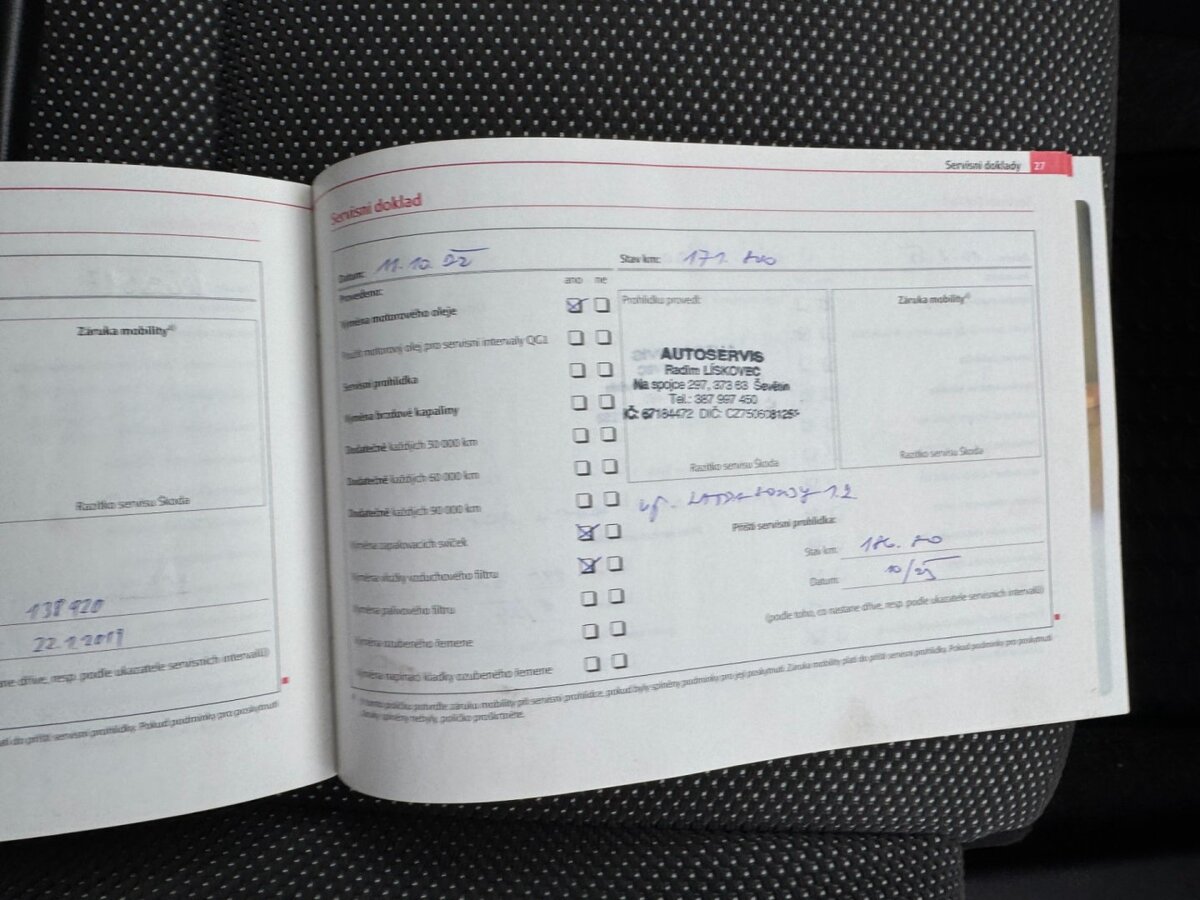 Záruka mobility⁴⁾
Razítko servisu Škoda
138 920
22.1.2019
dříve, resp. podle ukazatele servisních intervalů)
do příští servisní prohlídky. Pokud podmínky pro poskytnutí
Servisní doklady 27
Servisní doklad
Datum: 11.10.
Stav km: 171.
Provedeno:
ano ne
Výměna motorového oleje
Použit motorový olej pro servisní intervaly QG1
Servisní prohlídka
Výměna brzdové kapaliny
Dodatečně každých 30 000 km
Dodatečně každých 60 000 km
Dodatečně každých 90 000 km
Výměna zapalovacích svíček
Výměna vložky vzduchového filtru
Výměna palivového filtru
Výměna ozubeného řemene
Výměna napínací kladky ozubeného řemene
Prohlídku provedl:
AUTOSERVIS
Radim LÍSKOVEC
Na spojce 297, 373 63 Ševětín
Tel.: 387 997 450
IČ: 67184472 DIČ: CZ7506081251
Razítko servisu Škoda
Záruka mobility⁴⁾
Razítko servisu Škoda
Příští servisní prohlídka:
Stav km:
Datum: 10/
(podle toho, co nastane dříve, resp. podle ukazatele servisních intervalů)
Tímto políčko potvrďte záruku mobility při servisní prohlídce, pokud byly splněny podmínky pro její poskytnutí. Záruka mobility platí do příští servisní prohlídky. Pokud podmínky pro poskytnutí
záruky splněny nebyly, políčko proškrtněte.